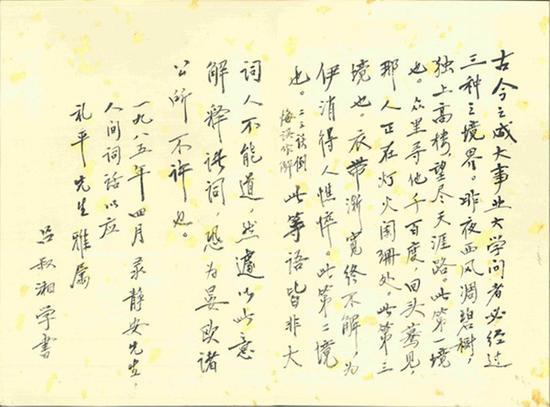 古今之成大事业大学问者必经过
三种之境界。昨夜西风凋碧树,
独上高楼,望尽天涯路。此第一境
也。众里寻他千百度,回头蓦见,
那人正在灯火阑珊处。此第三
境也。衣带渐宽终不解,为
伊消得人憔悴。此第二境
也。二三误倒
悔误作解
此等语皆非大
词人不能道,然遽以此意
解释诸词,恐为晏欧诸
公所不许也。
一九八五年四月录静安先生,
人间词话以应
礼平先生雅属
吕叔湘学书